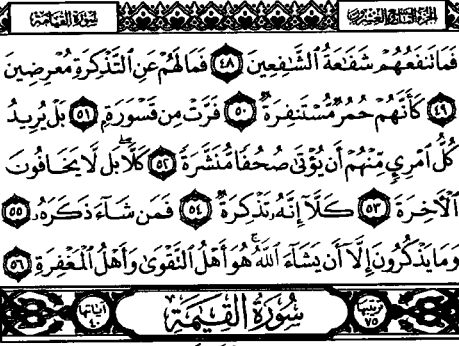 سُورَةُ القِيَامَةِ الجُزْءُ التَّاسِعُ وَالعِشْرُونَ
فَمَا تَنفَعُهُمْ شَفَٰعَةُ ٱلشَّٰفِعِينَ ٤٨ فَمَا لَهُمْ عَنِ ٱلتَّذْكِرَةِ مُعْرِضِينَ
٤٩ كَأَنَّهُمْ حُمُرٌ مُّسْتَنفِرَةٌ ٥٠ فَرَّتْ مِن قَسْوَرَةٍ ٥١ بَلْ يُرِيدُ
كُلُّ ٱمْرِئٍ مِّنْهُمْ أَن يُؤْتَىٰ صُحُفًا مُّنَشَّرَةً ٥٢ كَلَّا ۖ بَل لَّا يَخَافُونَ
ٱلْأَخِرَةَ ٥٣ كَلَّآ إِنَّهُۥ تَذْكِرَةٌ ٥٤ فَمَن شَآءَ ذَكَرَهُۥ ٥٥
وَمَا يَذْكُرُونَ إِلَّآ أَن يَشَآءَ ٱللَّهُ ۚ هُوَ أَهْلُ ٱلتَّقْوَىٰ وَأَهْلُ ٱلْمَغْفِرَةِ ٥٦
ترتيبها ٧٥ سُورَةُ القِيَٰمَةِ آياتها ٤٠